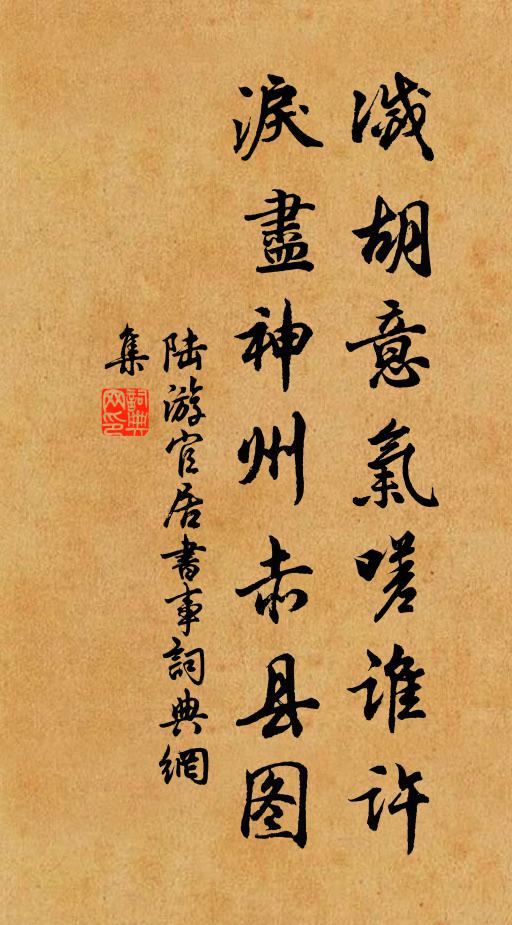 滅胡意氣嗟誰許
淚盡神州赤县图
陆游官居書事詞典網
集
詞典网印